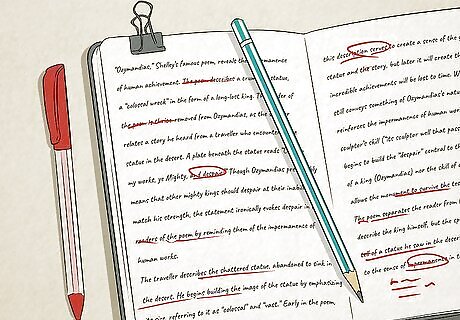 "Ozymandias," Shelley's famous poem, reveals the
of human achievement. The poem describes a
a "colossal wreck" in the form of a long-lost king. The
the poem is thrice removed from Ozymandias, as the
relates a story he heard from a traveller who
statue in the desert. A plate beneath the statue reads
my works, ye Mighty, and despair Though Ozymandias
means that other mighty kings should despair at their
match his strength, the statement ironically evokes despair in
readers of the poem by reminding them of the impermanence of
human works.
The traveller describes the shattered statue, abandoned to sink in
the desert. He begins building the image of the statue by emphasizing
its size, referring to it as "colossal" and "vast." Early in the poem
this description serves to create a sense of the
statue and the story, but later it will create
incredible achievements will be lost to time. W
still conveys something of Ozymandias's
reinforces the impermanence of human
sculptor's skill ("its sculptor well that
begins to build the "despair" central to
of a king (Ozymandias) nor the skill of
allows the monument to survive the
The poem separates the reader from
describe the king himself, but the
tell of a statue he saw in the
to the sense of impermanence in